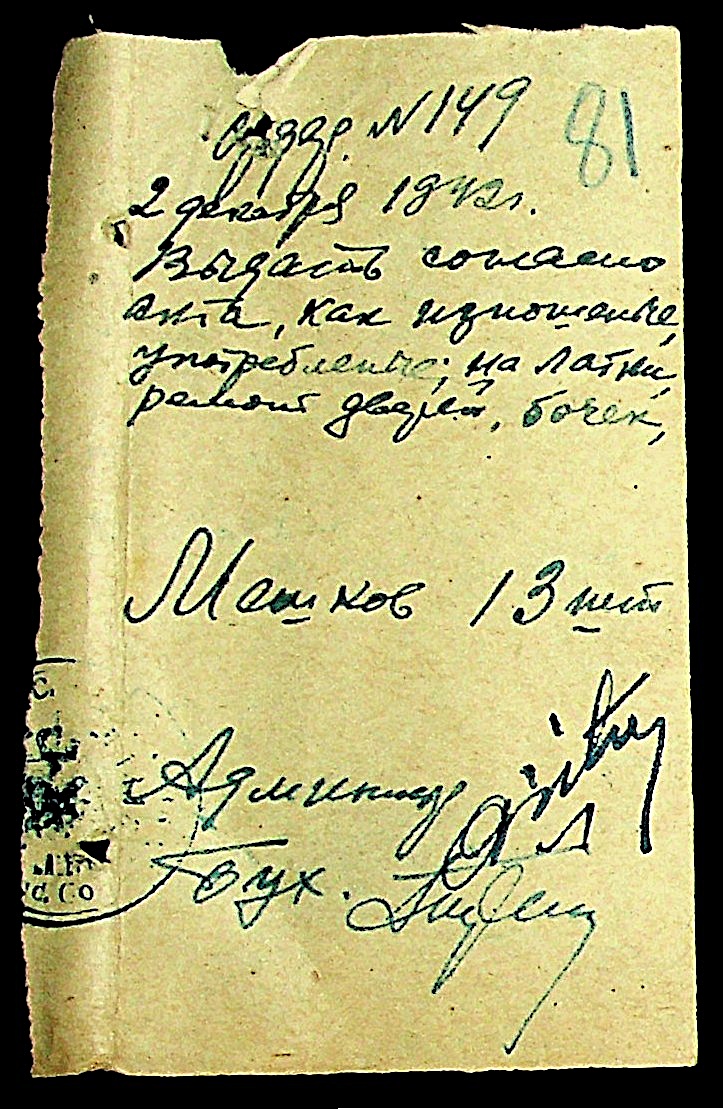 ордер N 149
81
2 декабря 1942 г.
Выдать согласно
акта, как изношенные
употребление; на латки,
ремонт дверей, бочек,
Мешков 13 шт
Админист
Бух.